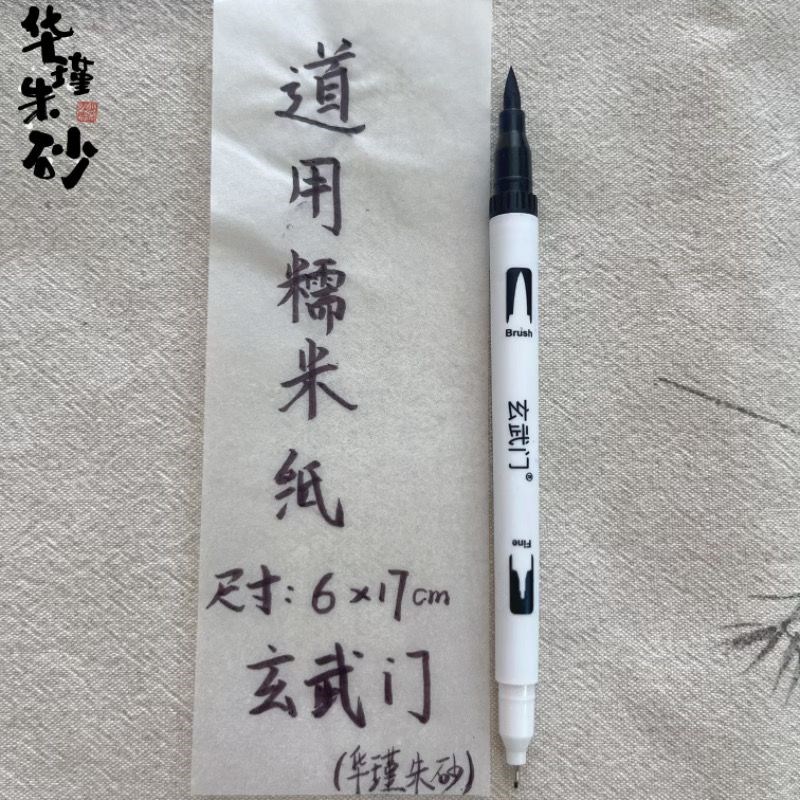 华瑾朱砂
道用糯米纸
尺寸：6×17cm
玄武门
(华瑾朱砂)
Brush
玄武门®
Fine